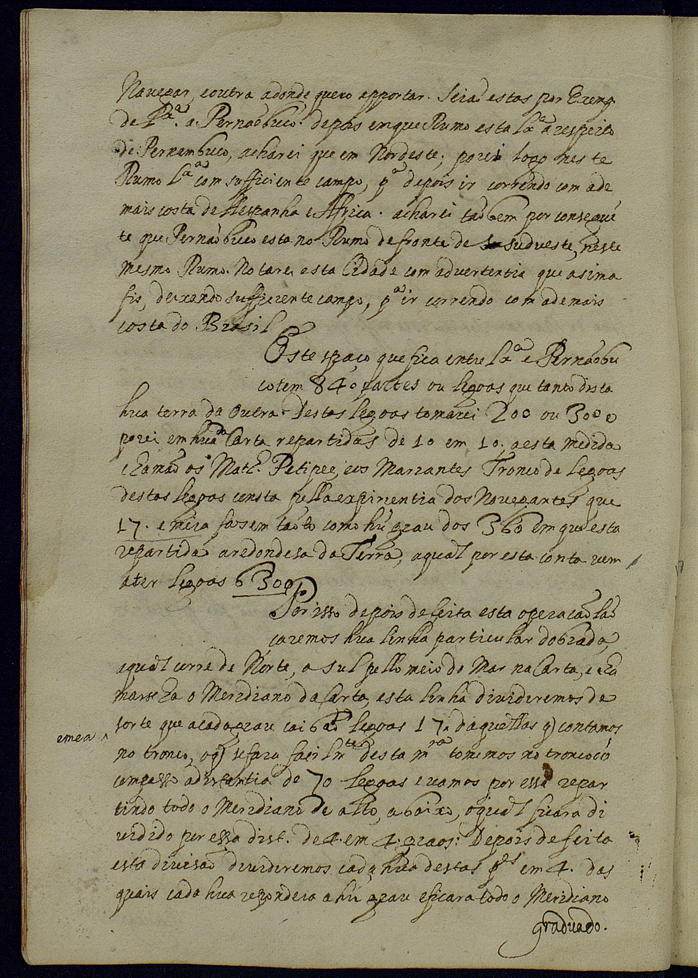 Navegar, e outra adonde quero apportar. Seiaõ estas por Exemp.
de Lxª. a Pernaõbuco. depois em que Rumo esta Lxª a respeito
de Pernambuco, acharei que em Nordeste; porei logo neste
Rumo Lxª com sufficiente campo, pª depois ir correndo com a de
mais costa de Hespanha e Africa. acharei taõbem por conseque
te que Pernaõbuco esta no Rumo de fronte de sudueste, neste
mesmo Rumo. Notarei esta Cidade com advertentia que asima
fis, deixando sufficiente campo, pª ir correndo com a demais
costa do Brasil
Este espaço que fica entre Lxª e Pernaõbu
co tem 840 partes ou legoas que tanto dista
hua terra da outra. Destas legoas tomarei 200 ou 300 e
porei em hua Carta repartidas de 10 em 10. a esta medida
chamaõ os Math. Petipee, e os Mareantes Tronco de legoas
destas legoas consta pella expirientia dos Navegantes que
17. e meia fasem taõto como hú grau dos 360 em que esta
repartida a redondesa da Terra, a qual por esta conta vem
a ter legoas 6300.
Por isso depois de feita esta operacaõ la
caremos hua linha particular dobrada,
a qual corre de Norte, a Sul pello meio do Mar na Carta, e cha
marseha o Meridiano da Carta, esta linha dividiremos de
sorte que a cada grau caibaõ legoas 17. daquellas q contamos
emeia ^
no tronco, o q se fara facilmte desta mrª tomemos no tronco có
compasso a distantia de 70 legoas e vamos por essa repar
tindo todo o Meridiano de alto, a baixo, o qual ficara di
vidido por essa dist. de 4. em 4. graos: Depois de feita
esta divisaõ dividiremos cada hua destas ptes em 4. das
quais cada hua respondera a hú grau e ficara todo o Meridiano
graduado.